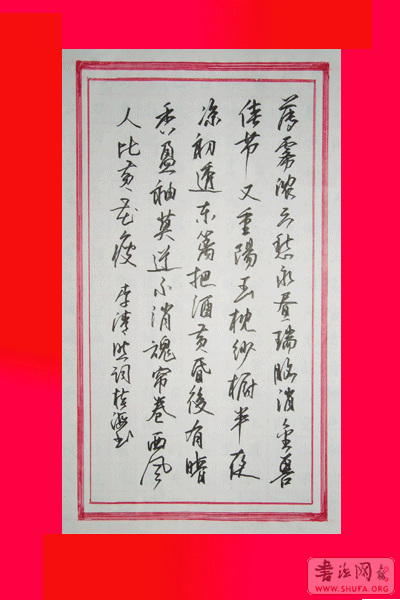 薄雾浓云愁永昼瑞脑消金兽
佳节又重陽玉枕纱橱半夜
凉初透东篱把酒黄昏後有暗
香盈袖莫道不消魂帘卷西风
人比黄花瘦 李清照词 海书
書法网
WWW.SHUFA.ORG